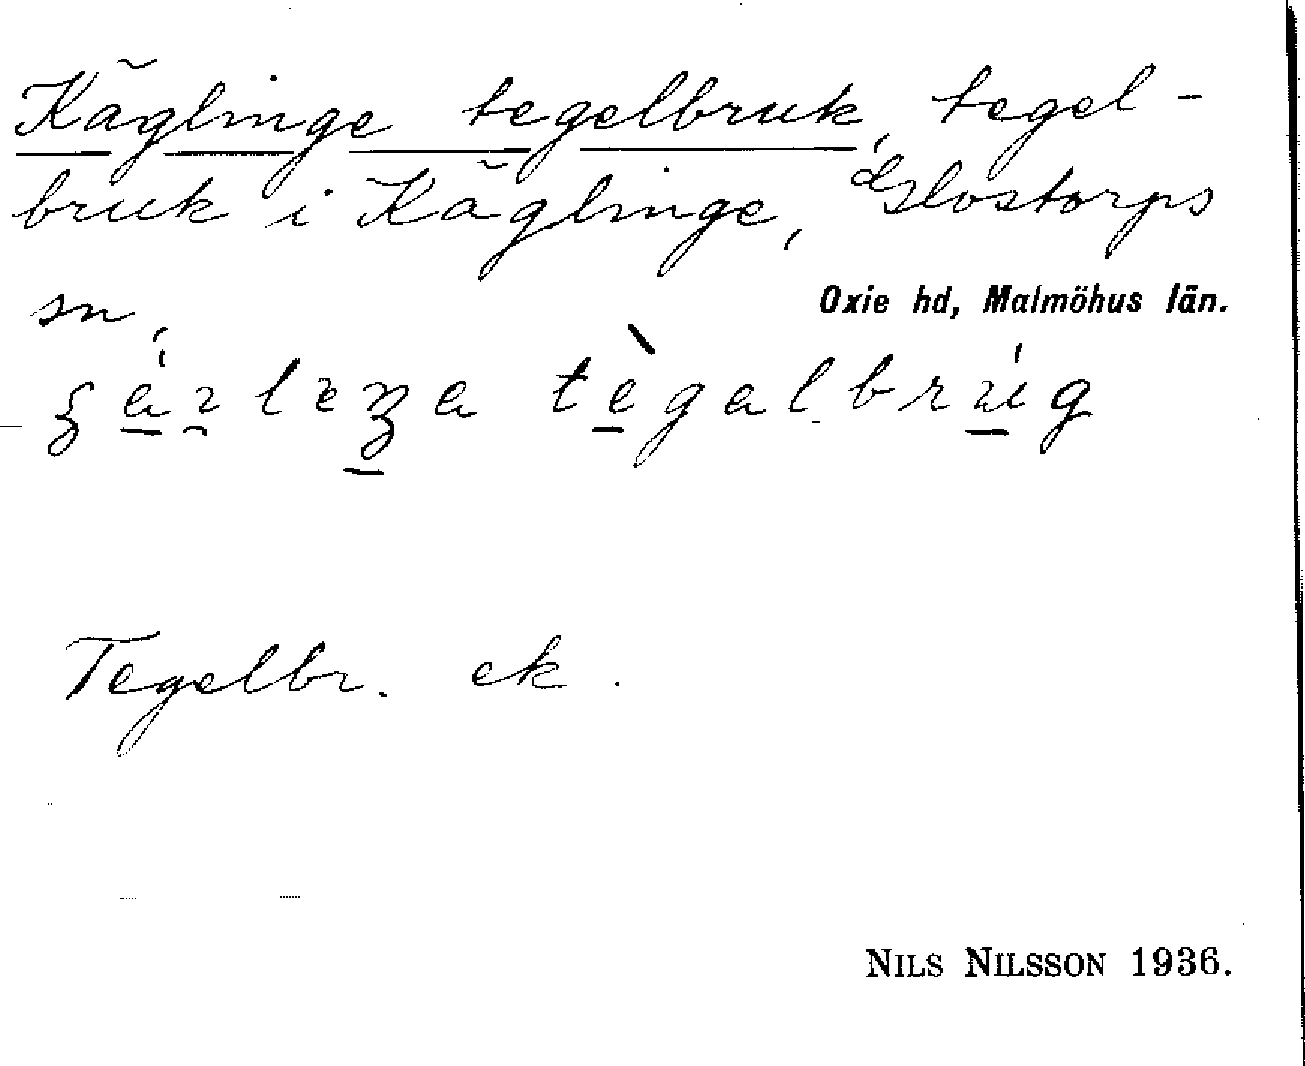 Käglinge tegelbruk, tegel-
bruk i Käglinge, Glostorps
sn,
Oxie hd, Malmöhus län.
Tegelbr. ek.
NILS NILSSON 1936.